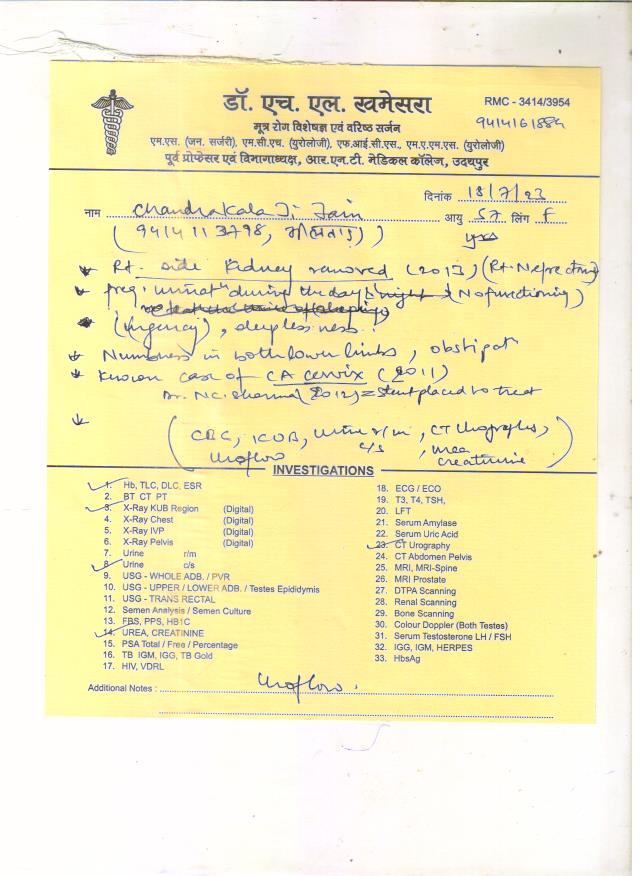 डॉ. एच. एल. खमेसरा
RMC - 3414/3954
9414161884
मूत्र रोग विशेषज्ञ एवं वरिष्ठ सर्जन
एम.एस. (जन. सर्जरी), एम.सी.एच. (युरोलोजी), एफ.आई.सी.एस., एम.ए.एम.एस. (युरोलोजी)
पूर्व प्रोफेसर एवं विभागाध्यक्ष, आर.एन.टी. मेडिकल कॉलेज, उदयपुर
दिनांक 18/7/23
नाम Chandrakala Ji Jain आयु 57 लिंग F
(9414113798, ) yrs
Rt. side Kidney removed (2013) (Rt. Nefrectomy)
freq: urinatn during the day & night (No functioning)
(Urgency), sleeplessness.
Numbness in both lower limbs, obstipatn
Known case of CA cervix (2011)
Dr. N.C. Sharma (2012) = Stent placed to treat
(CBC, KUB, Urine r/m, CT Urography,
Uroflow c/s, urea
creatinine)
INVESTIGATIONS
1. Hb, TLC, DLC, ESR
2. BT CT PT
3. X-Ray KUB Region (Digital)
4. X-Ray Chest (Digital)
5. X-Ray IVP (Digital)
6. X-Ray Pelvis (Digital)
7. Urine r/m
8. Urine c/s
9. USG - WHOLE ADB. / PVR
10. USG - UPPER / LOWER ADB. / Testes Epididymis
11. USG - TRANS RECTAL
12. Semen Analysis / Semen Culture
13. FBS, PPS, HB1C
14. UREA, CREATININE
15. PSA Total / Free / Percentage
16. TB IGM, IGG, TB Gold
17. HIV, VDRL
18. ECG / ECO
19. T3, T4, TSH,
20. LFT
21. Serum Amylase
22. Serum Uric Acid
23. CT Urography
24. CT Abdomen Pelvis
25. MRI, MRI-Spine
26. MRI Prostate
27. DTPA Scanning
28. Renal Scanning
29. Bone Scanning
30. Colour Doppler (Both Testes)
31. Serum Testosterone LH / FSH
32. IGG, IGM, HERPES
33. HbsAg
Additional Notes : Uroflow.